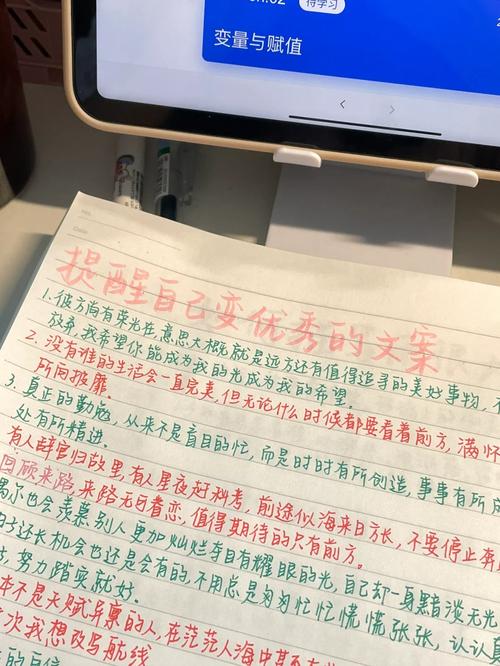 Ch.02
待学习
变量与赋值
NO.
Date
提醒自己变优秀的文案
1. 彼方尚有荣光在意思大概就是远方还有值得追寻的美好事物,不
放弃,我希望你能成为我的光成为我的希望.
2. 没有谁的生活会一直完美,但无论什么时候都要看着前方,满怀
所向披靡.
3. 真正的勤勉,从来不是盲目的忙,而是时时有所创造,事事有所成
处有所精进.
有人辞官归故里,有人星夜赶科考,前途似海来日方长,不要停止奔跑
回顾来路,来路无可眷恋,值得期待的只有前方.
偶尔也会羡慕别人更加灿烂夺目有耀眼的光,自己却一身黯淡无光
子还长机会也还是会有的,不用总是匆匆忙忙慌慌张张,认认真
努力踏实就好.
本不是天赋异禀的人,在茫茫人海中甚至
次我想改写航线